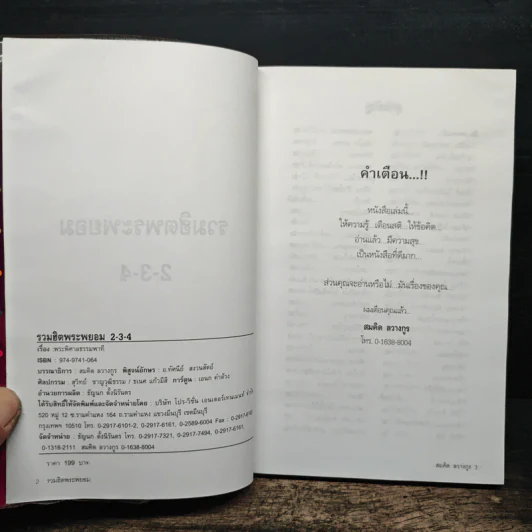 รวมฮิตพระพยอม 2-3-4
เรื่อง :พระพิศาลธรรมพาที
ISBN : 974-9741-064
บรรณาธิการ : สมคิด ลวางกูร พิสูจน์อักษร : อ.ทัศนีย์ สงวนสัตย์
ศิลปกรรม : สุวิทย์ ชาญวุฒิธรรม / ธเนศ แก้วมีสี การ์ตูน : เอนก ทำด้วง
อำนวยการผลิต : ธัญนก ตั้งนิรันดร
ได้รับสิทธิ์ให้จัดพิมพ์และจัดจำหน่ายโดย : บริษัท โปร-วิชั่น เอนเตอร์เทนเมนท์ จำกัด
520 หมู่ 12 ซ.รามคำแหง 164 ถ.รามคำแหง แขวงมีนบุรี เขตมีนบุรี
กรุงเทพฯ 10510 โทร. 0-2917-6101-2, 0-2917-6161, 0-2589-6004 Fax : 0-2917-6161
จัดจำหน่าย : ธัญนก ตั้งนิรันดร โทร. 0-2917-7321, 0-2917-7494, 0-2917-6161,
0-1318-2111 สมคิด ลวางกูร 0-1638-8004
ราคา 199 บาท
2 รวมฮิตพระพยอม
คำเตือน...!!
หนังสือเล่มนี้...
ให้ความรู้...เตือนสติ...ให้ข้อคิด...
อ่านแล้ว...มีความสุข...
เป็นหนังสือที่ดีมาก...
ส่วนคุณจะอ่านหรือไม่...มันเรื่องของคุณ
ผมเตือนคุณแล้ว..
สมคิด ลวางกูร
โทร. 0-1638-8004
สมคิด ลวางกูร 3